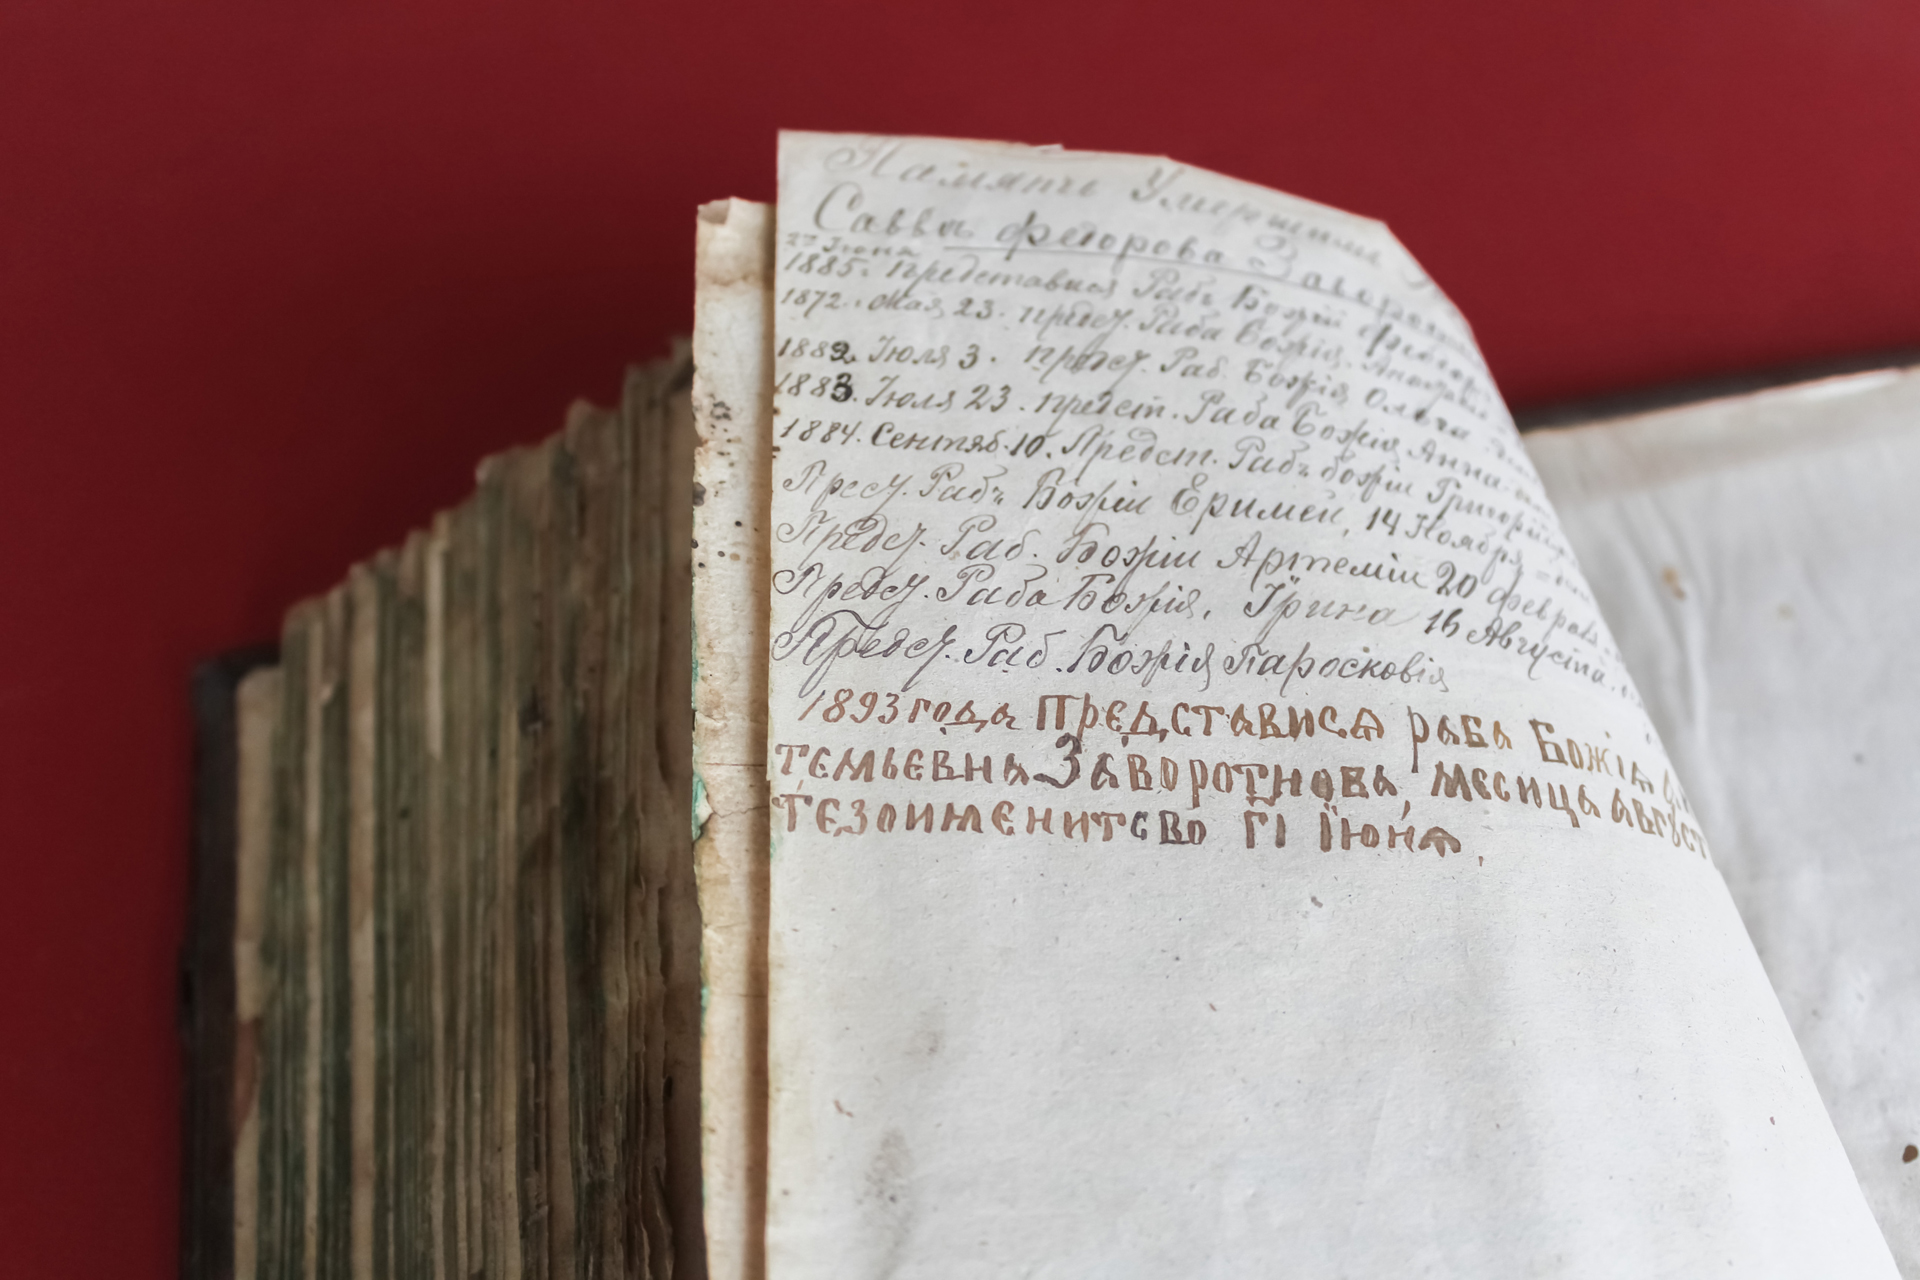 Память Умершимъ
Савва Федорова Заворотнова
27 Іюня
1885. Представися Рабъ Божій Феодоръ
1872. Мая 23. предст. Раба Божія.
1882. Іюля 3. предст. Раб. Божія Ольга
1883. Іюля 23. предст. Раба Божія Анна
1884. Сентяб. 10. Предст. Рабъ божіи Григорій
Предст. Рабъ Божіи Еримеи, 14 Ноября
Предст. Раб. Божіи Артеміи 20 Февраля
Предст. Раба Божія, Їрина 16 Августа
Предст. Раб. Божія Паросковія
1893 года Представися раба Божія
темьевна Заворотнова, месица август
тезоименитсво гі Їюня.